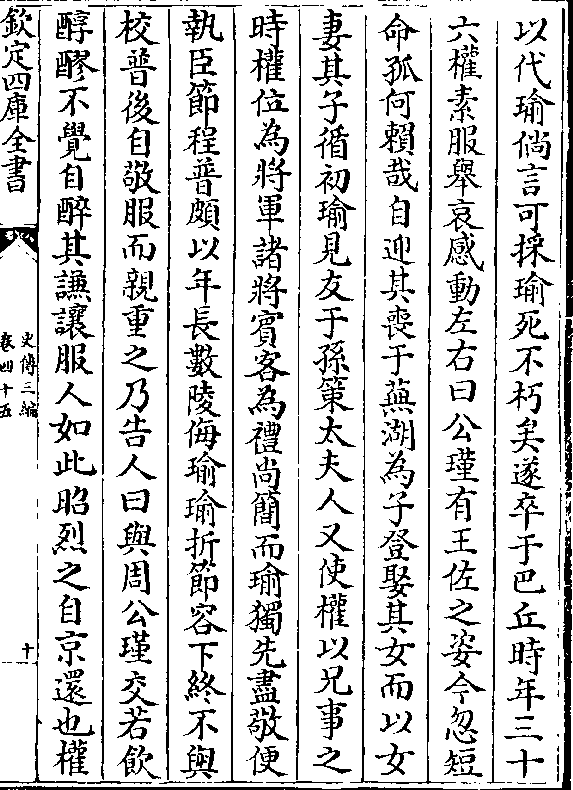 以代瑜倘言可採瑜死不朽矣遂卒于巴丘時年三十
六權素服舉哀感動左右曰公瑾有王佐之姿今忽短
命孤何賴哉自迎其喪于蕪湖為子登娶其女而以女
妻其子循初瑜見友于孫策太夫人又使權以兄事之
時權位為將軍諸將賓客為禮尚簡而瑜獨先盡敬便
執臣節程普頗以年長數陵侮瑜瑜折節容下終不與
校普後自敬服而親重之乃告人曰與周公瑾交若飲
醇醪不覺自醉其謙讓服人如此昭烈之自京還也權
欽定四庫全書
史傳三編
卷四十五
十